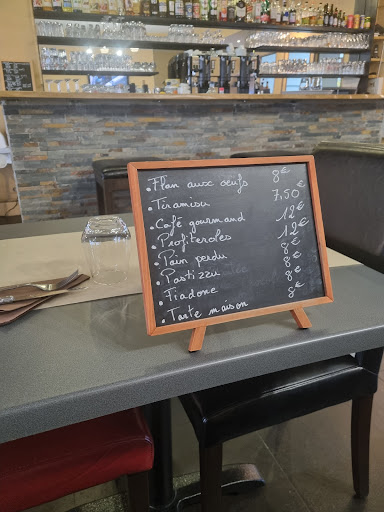 • Flan aux oeufs 8€
• Tiramisu 7,50€
• Café gourmand 12€
• Profiteroles 12€
• Pain perdu 8€
• Pastizzu 8€
• Fiadone 8€
• Tarte maison 8€